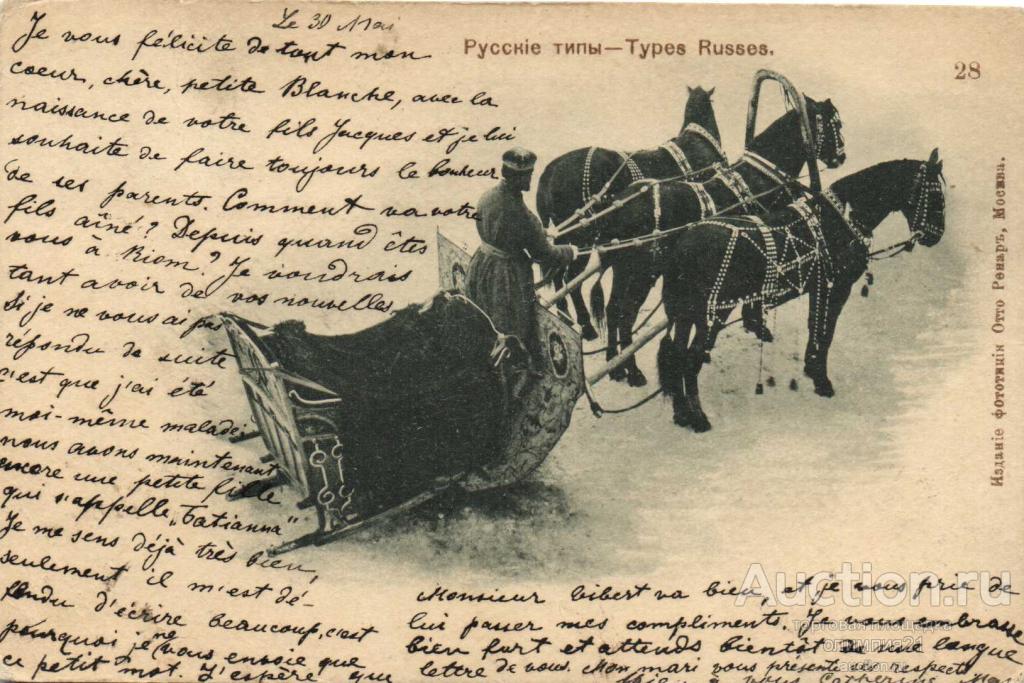 Le 30 Mai
Русскіе типы—Types Russes.
28
Je vous félicite de tout mon
coeur, chère, petite Blanche, avec la
naissance de votre fils Jacques et je lui
souhaite de faire toujours le bonheur
de ses parents. Comment va votre
fils aîné? Depuis quand êtes
vous à Riom? Je voudrais
tant avoir de vos nouvelles
Si je ne vous ai pas
répondu de suite
c'est que j'ai été
moi-même malade:
nous avons maintenant
encore une petite fille
qui s'appelle „Tatianna"
Je me sens déjà très bien,
seulement il m'est dé-
fendu d'écrire beaucoup, c'est
pourquoi je ne vous envoie que
ce petit mot. J'espère que
Monsieur Vibert va bien, et je vous prie de
lui passer mes compliments. Je vous embrasse
bien fort et attends bientôt une longue
lettre de vous. Mon mari vous présente ses respects
à vous Catherine
Изданіе фототипіи Отто Ренаръ, Москва.
Auction.ru
торговая площадка
олимпия21
auction.ru